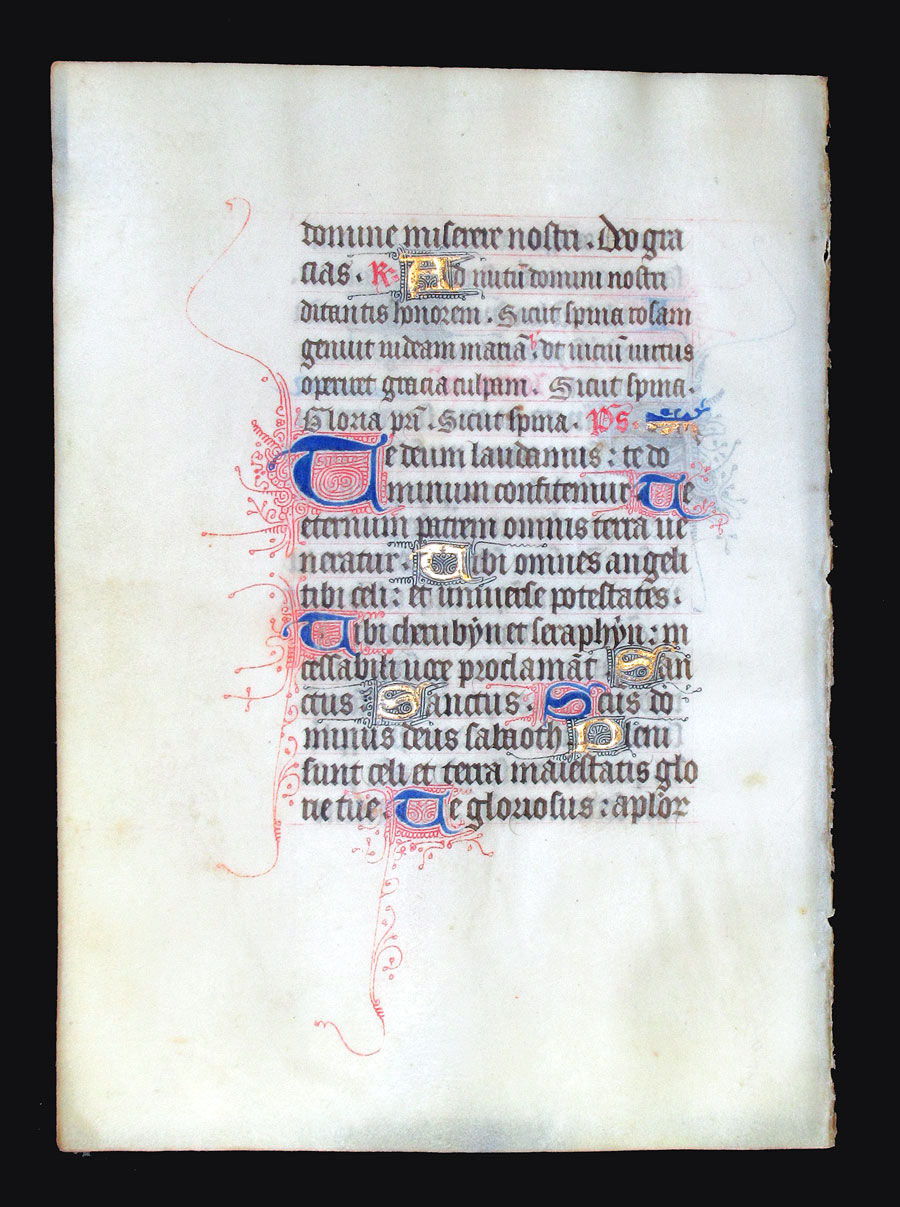 domine miserere nostri . Deo gra
cias . R Ad nutũ domini nostri
ditantis honorem . Sicut spina rosam
genuit iudeam mariã . v Ut viciũ virtus
operiret gracia culpam . Sicut spina .
Gloria pr̃i . Sicut spina . Ps .
Te deum laudamus : te do
minum confitemur Te
eternum patrem omnis terra ve
neratur . Tibi omnes angeli
tibi celi : et universe potestates .
Tibi cherubyn et seraphyn : in
cessabili voce proclamãt San
ctus Sanctus . Sc̃us do
minus deus sabaoth Pleni
sunt celi et terra maiestatis glo
rie tue . Te gloriosus : apl̃or